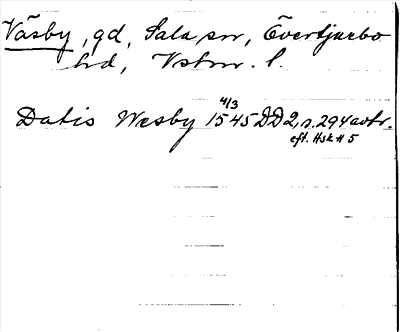 Väsby, gd, Sala sn, Övertjurbo
hd, Vstm. l.
4/3
Datis Wesby 1545 DD 2, s. 294 avtr.
eft. Hsk H 5